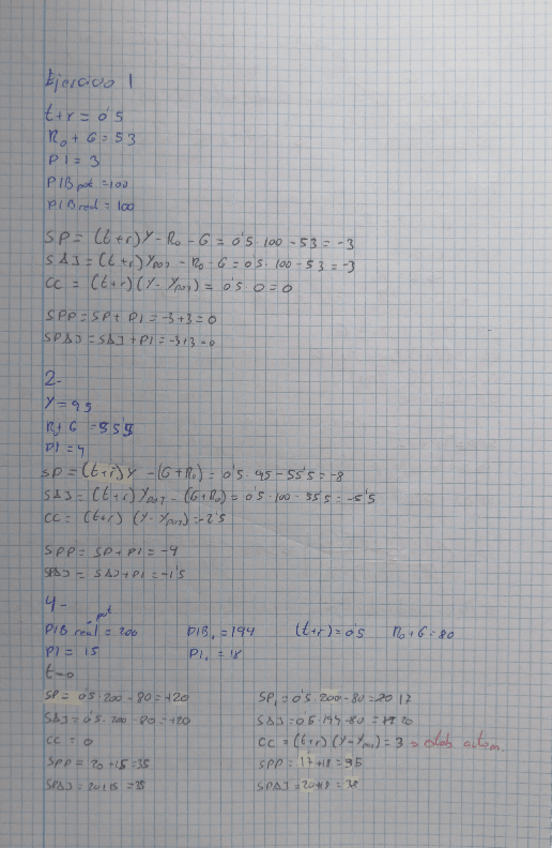 Ejercicio 1
t+r = 0'5
R₀ + G = 53
PI = 3
PIB pot = 100
PIB real = 100
SP = (t+r) Y - R₀ - G = 0'5 · 100 - 53 = -3
SAJ = (t+r) Ypot - R₀ - G = 0'5 · 100 - 53 = -3
CC = (t+r) (Y - Ypot) = 0'5 · 0 = 0
SPP = SP + PI = -3+3 = 0
SPAJ = SAJ + PI = -3+3 = 0
2-
Y = 95
R+G = 55'5
PI = 4
SP = (t+r) Y - (G+R₀) = 0'5 · 95 - 55'5 = -8
SAJ = (t+r) Ypot - (G+R₀) = 0'5 · 100 - 555 = -5'5
CC = (t+r) (Y-Ypot) = -2'5
SPP = SP + PI = -4
SPAJ = SAJ + PI = -1'5
4-
pot
PIB real = 200 PIB₁ = 194 (t+r) = 0'5 R₀+G = 80
PI = 15 PI₁ = 18
t=0
SP = 0'5 · 200 - 80 = +20 SP₁ = 0'5 · 200 - 80 = 17
SAJ = 0'5 · 200 - 80 = +20 SAJ = 0'5 · 194 - 80 = 20
CC = 0 CC = (t+r) (Y-Ypot) = 3 → estab autom.
SPP = 20 + 15 = 35 SPP = 17 + 18 = 35
SPAJ = 20+15 = 35 SPAJ = 20+18 = 38